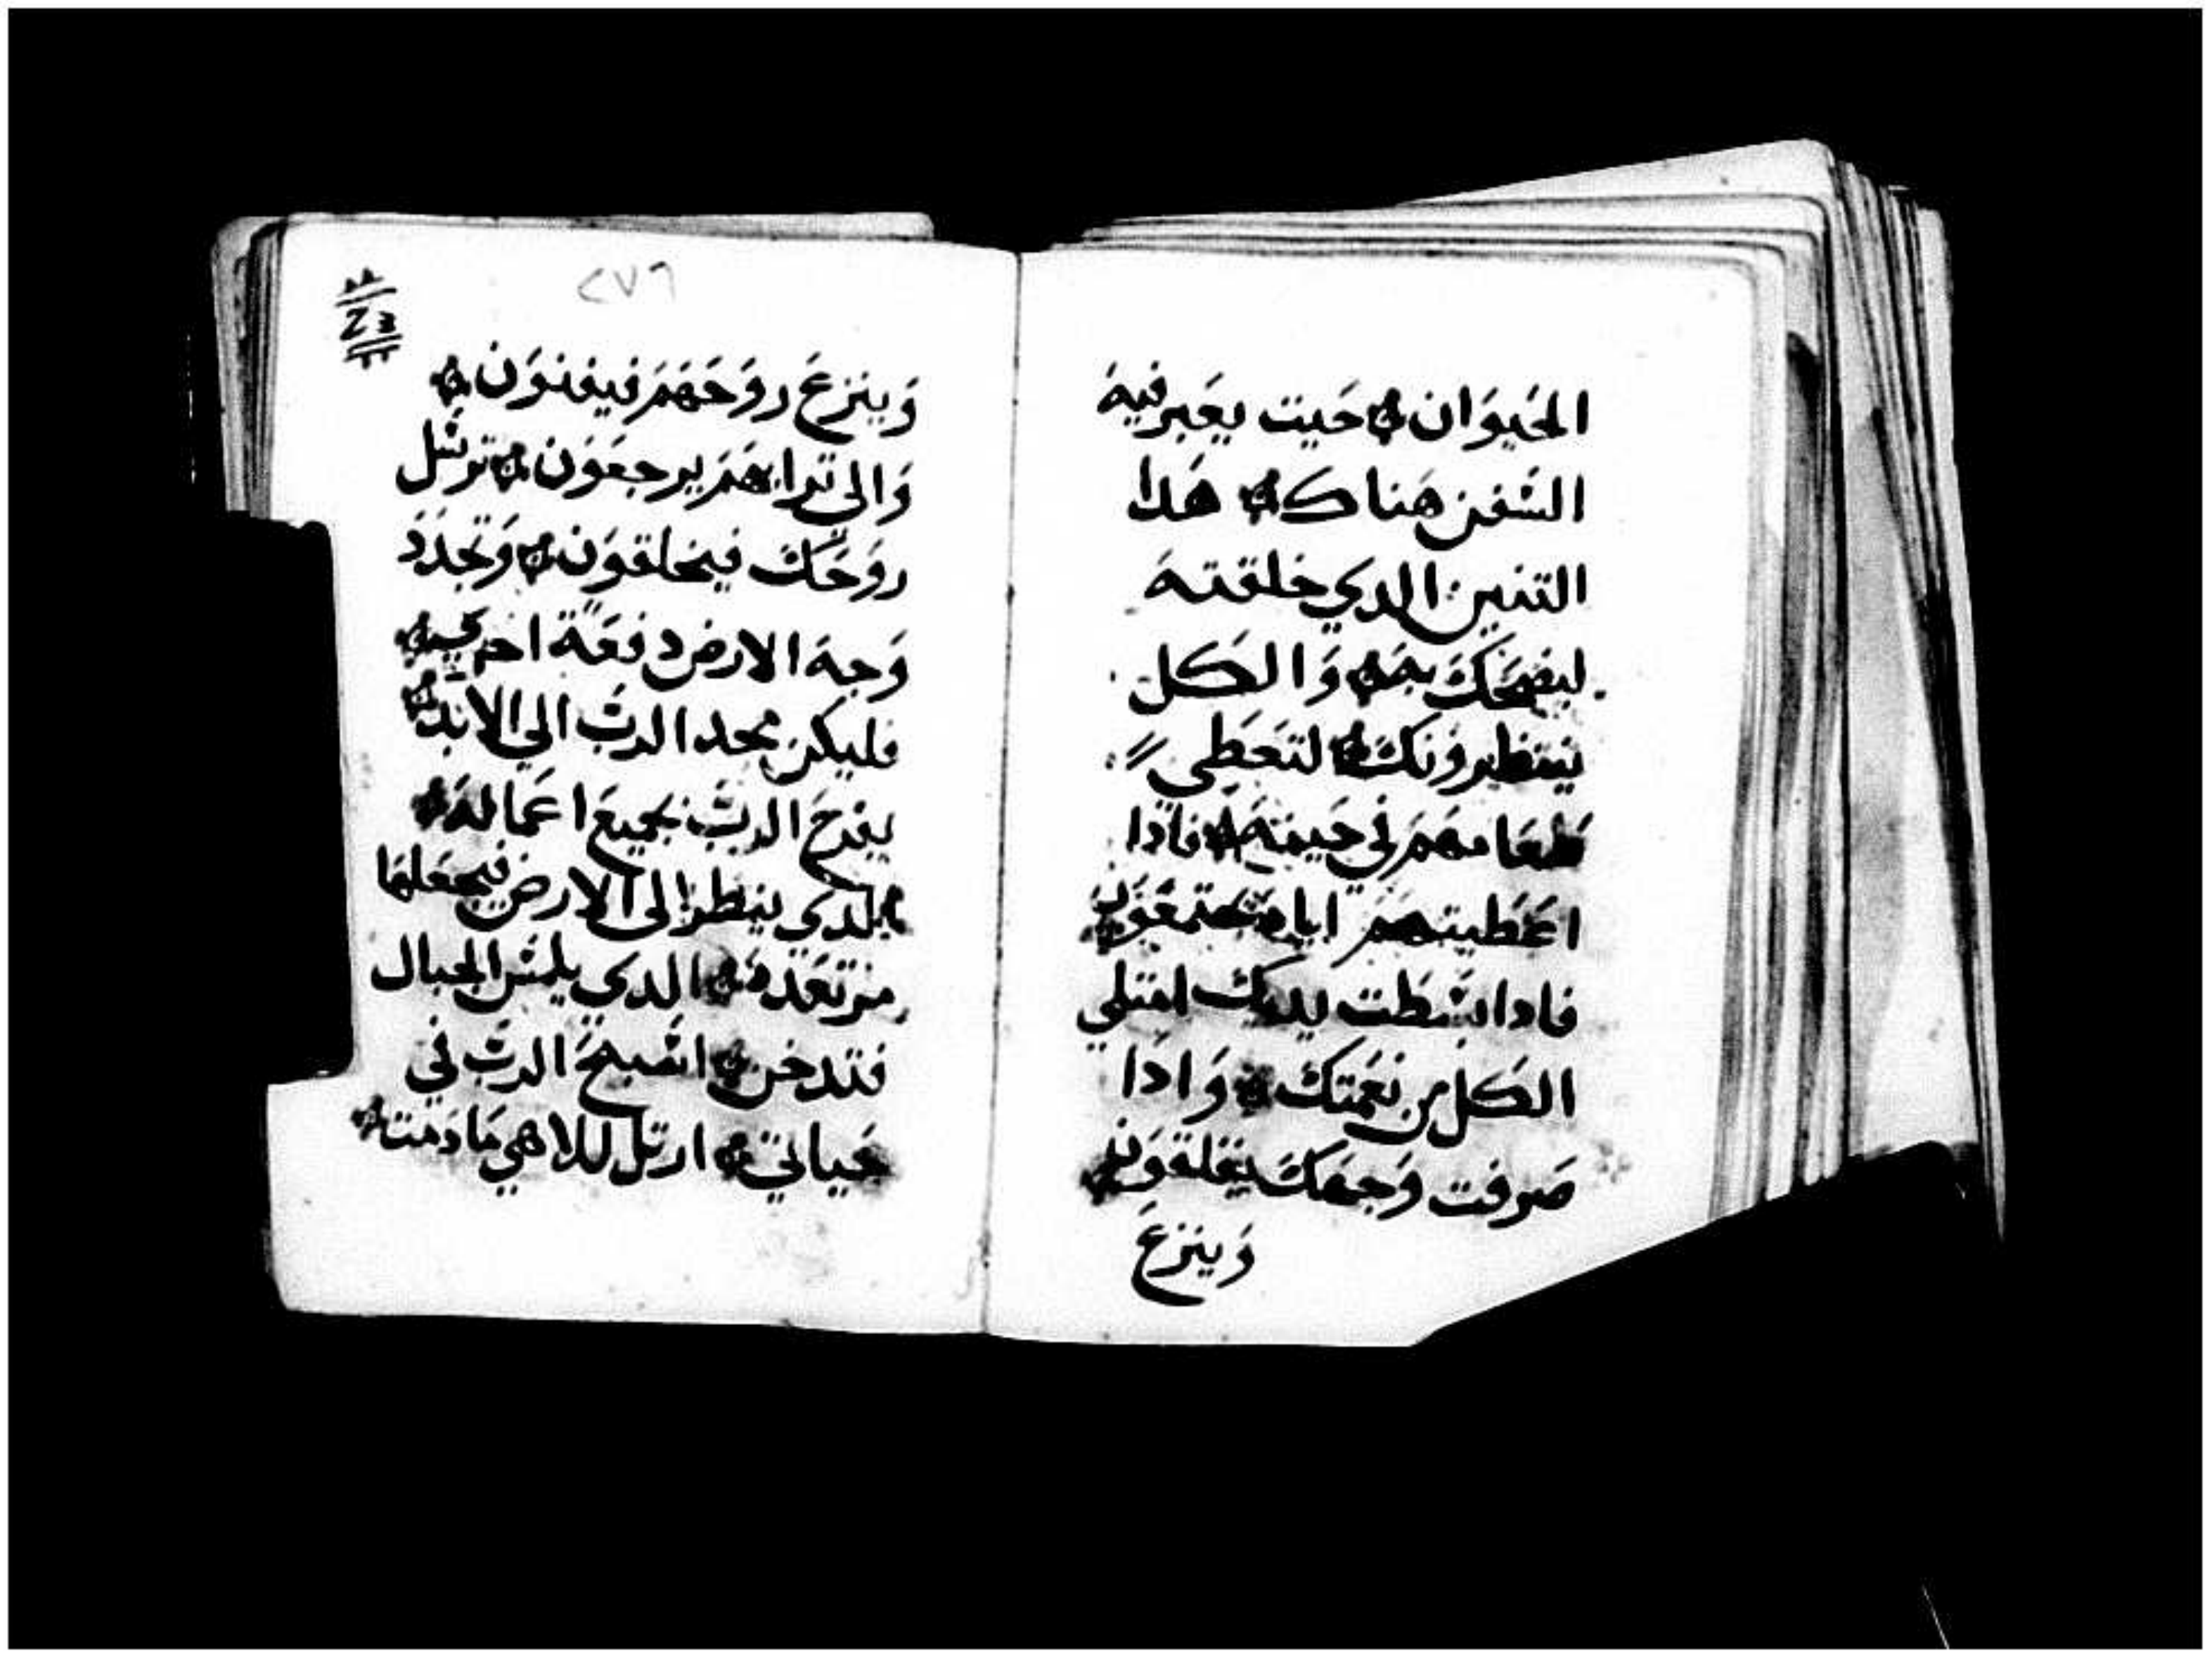 الحَيوَان حَيت يعَبر فيهَ
السُفن هَناك هَدا
التنين الدي خلقتهَ
ليضحَكَ بهَ وَالكل
ينتظروَنكَ لتعَطي
طعَامهَمَ في حينهَ فادا
اعَطيتهمَ اياهَ يجتمعَوَن
فادا بسَطت يديك امتلي
الكل من نعَمتكَ وَادَا
صَرفت وَجهَكَ يقلقوَن
وَينزعَ
٢٧٦
وَينزعَ روَحَهَمَ فيفنوَن
وَالي ترابهمَ يرجعَوَن ترسَل
روَحَكَ فيخلقوَن وَتجَدَدَ
وَجهَ الارض دفعَة اخري
فليكن مجد الربَ الي الابَد
يفرحَ الربَ بجميعَ اعَمالهَ
الدي ينظر الي الارض فيجعَلهَا
مرتعَدهَ الدي يلمسَ الجبال
فتدخن اسَبحَ الربَ في
حَياتي ارتل للاهي مَا دَمت